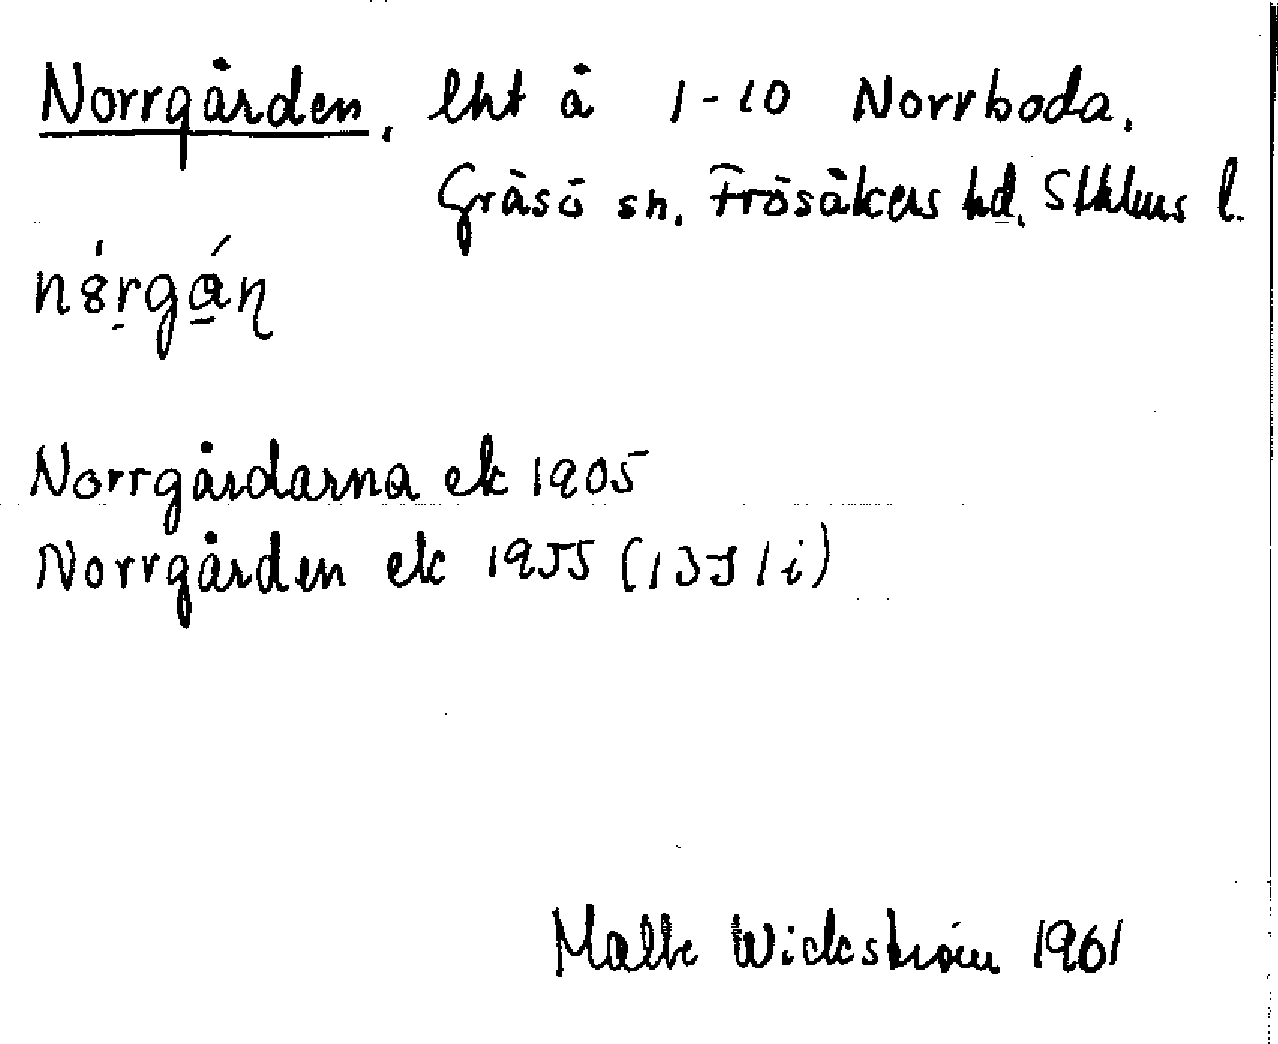 Norrgården, lht å 1-10 Norrboda.
Gräsö sn, Frösåkers hd, Sthlms l.
Norrgårdarna ek 1905
Norrgården ek 1955 (13J 1 i)
Wickström 1961